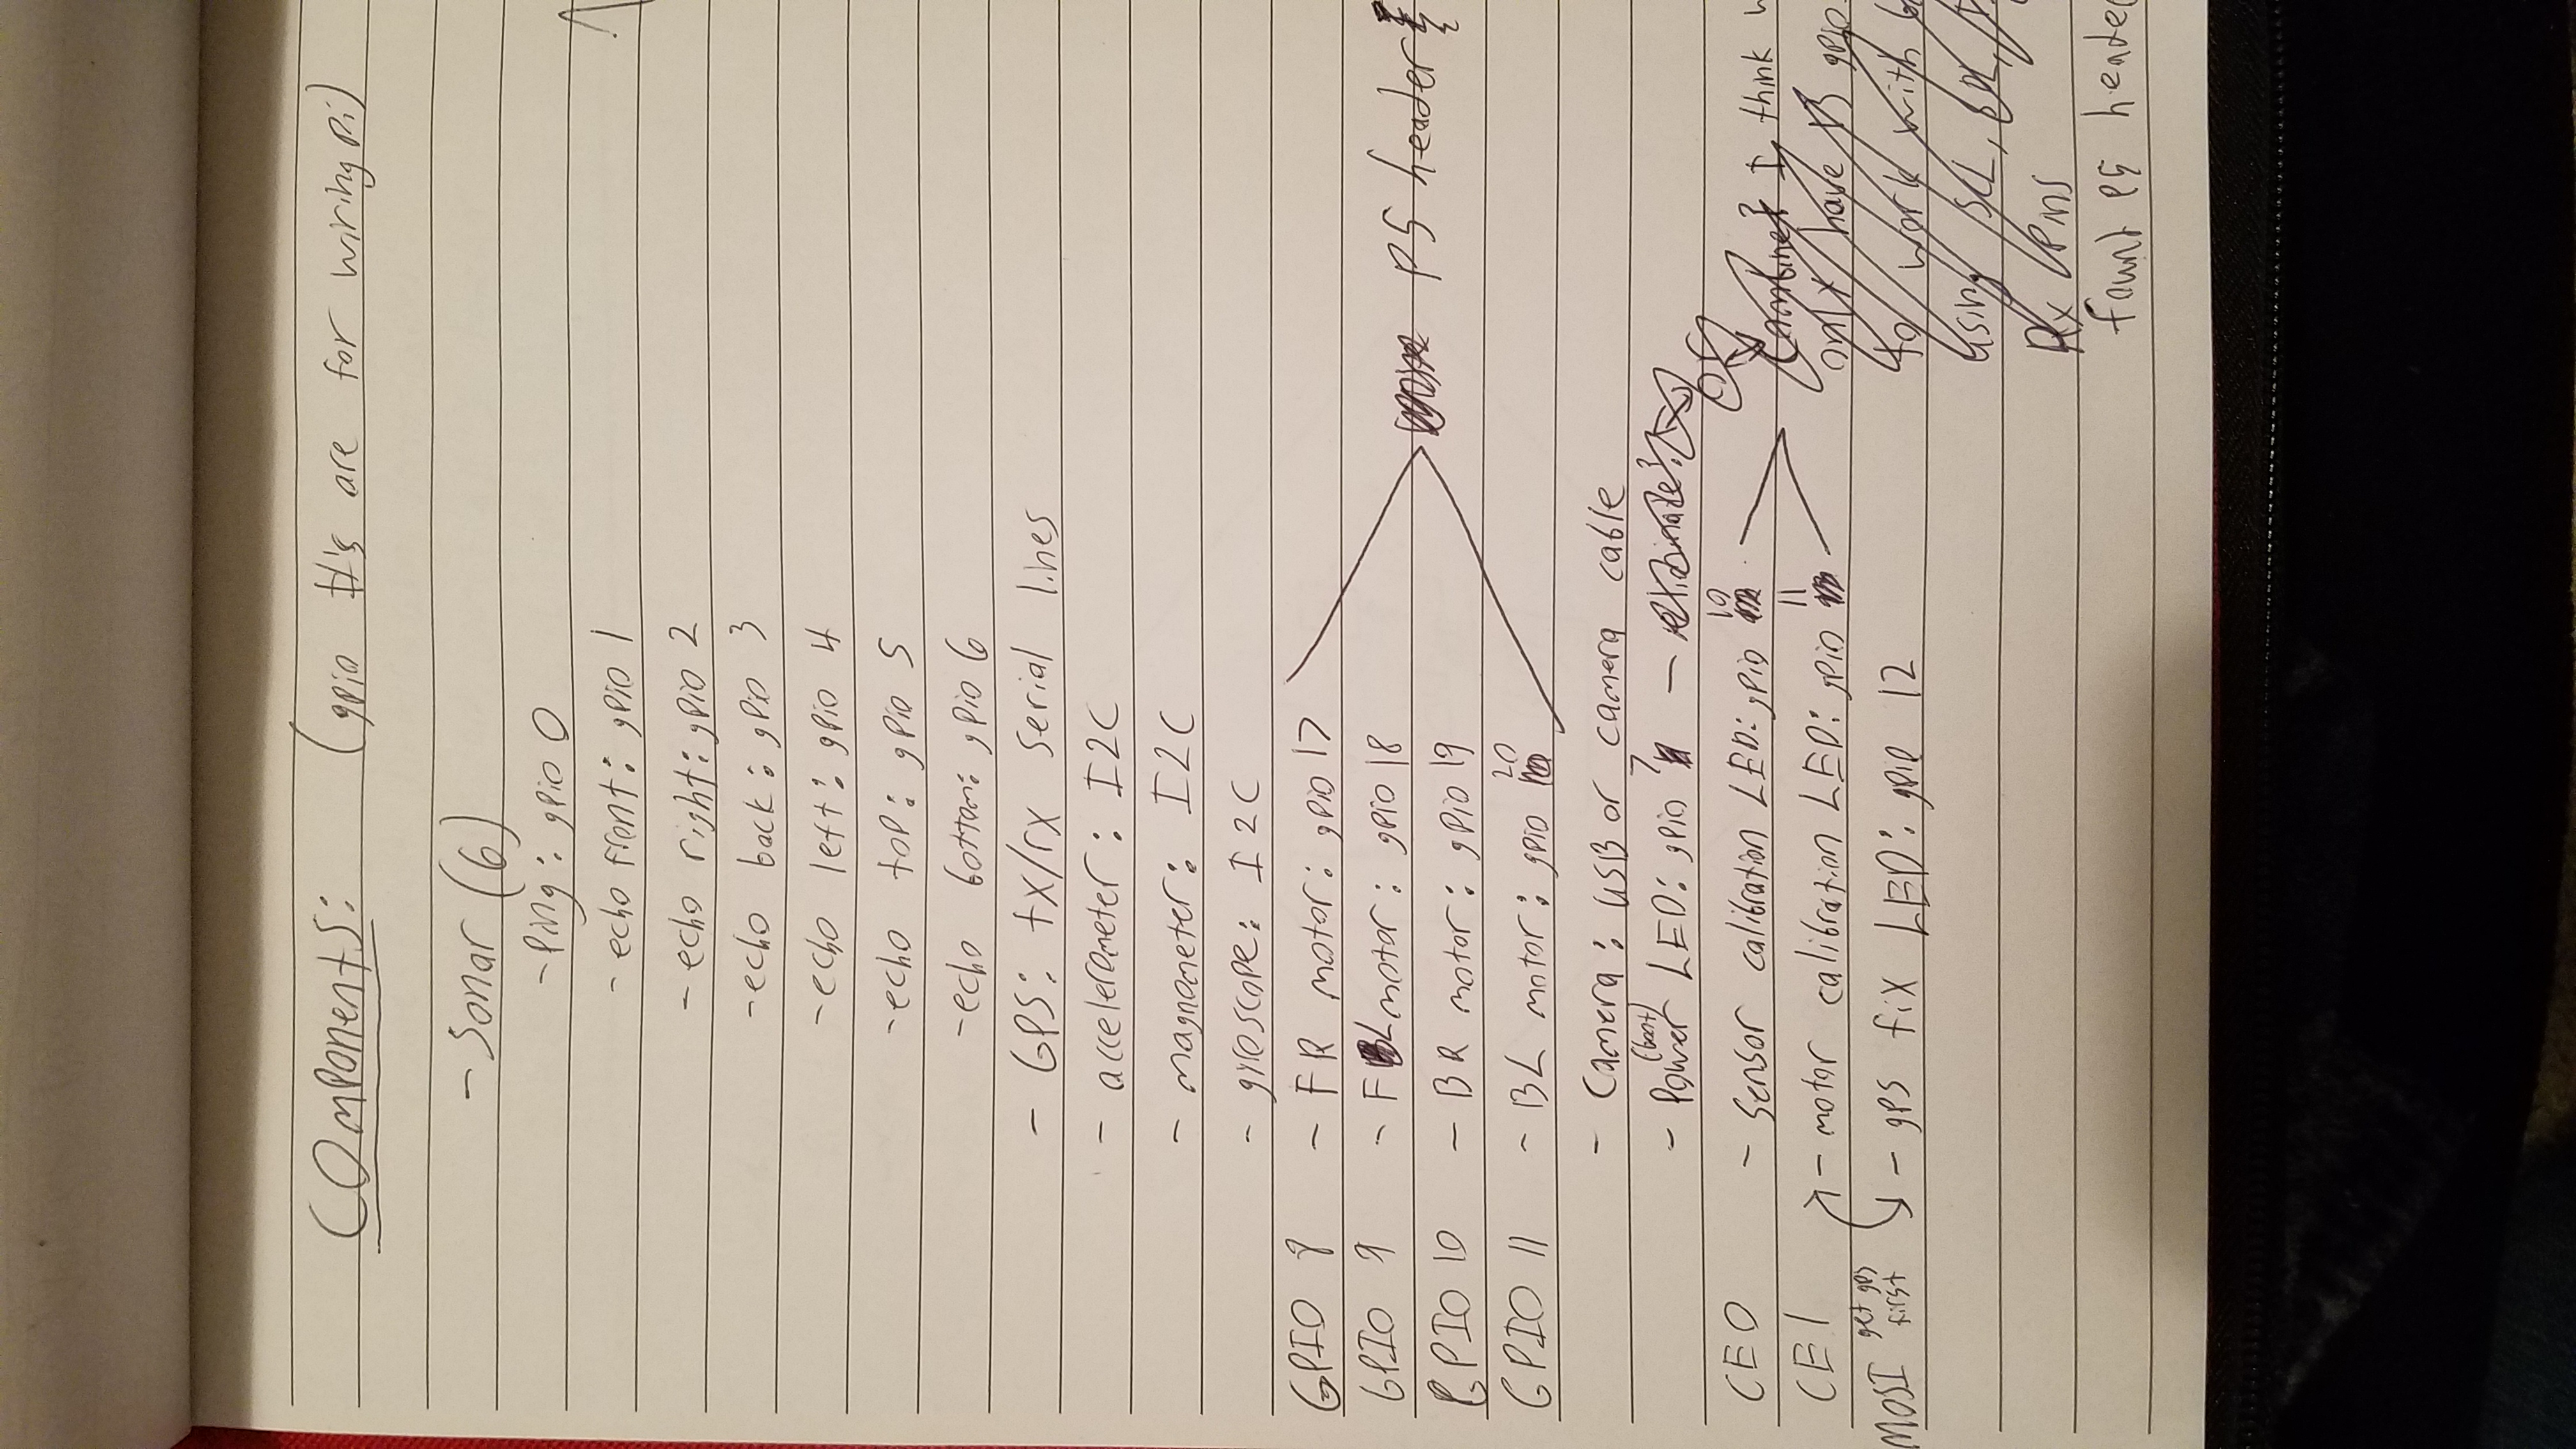 Components: (gpio #'s are for wiringpi)
- Sonar (6)
- Ping: gpio 0
- echo front: gpio 1
- echo right: gpio 2
- echo back: gpio 3
- echo left: gpio 4
- echo top: gpio 5
- echo bottom: gpio 6
- GPS: tx/rx serial lines
- accelerometer: I2C
- magnometer: I2C
- gyroscope: I2C
GPIO 8 - FR motor: gpio 17
GPIO 9 - FL motor: gpio 18
P5 header
GPIO 10 - BR motor: gpio 19
GPIO 11 - BL motor: gpio 20
- Camera: USB or camera cable
- Power (boot) LED: gpio 7 - eliminate?
or
CE0 - sensor calibration LED: gpio 10
Combine? I think
CE1 - motor calibration LED: gpio 11
only have 13 gpio
MOSI get gps first - gps fix LED: gpio 12
to work with
using SCL, SDL,
Rx Pins
found P5 header